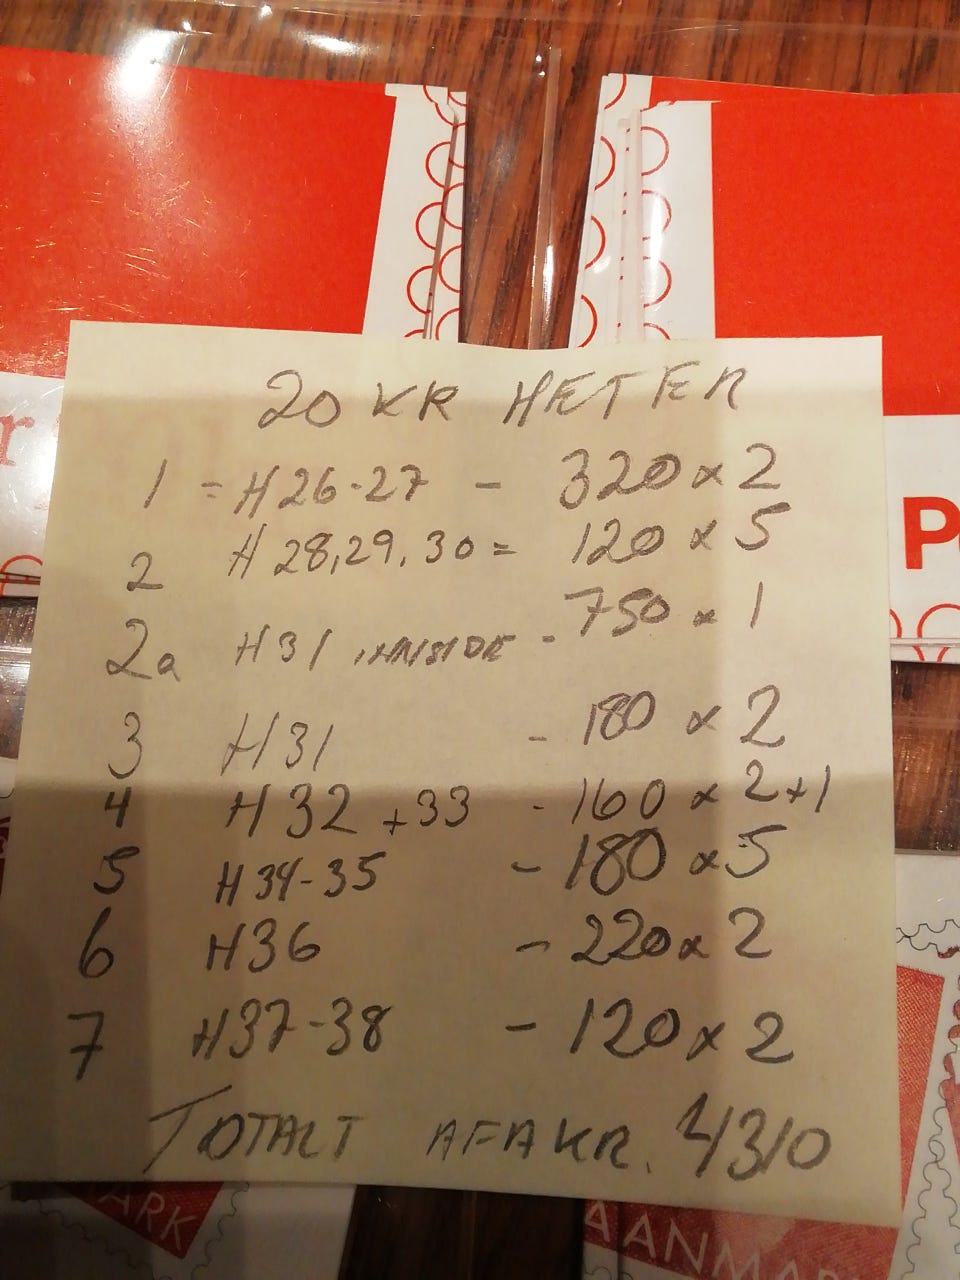 20 KR HEFTER
1 = H26-27 - 320 x 2
2 H 28,29,30 = 120 x 5
2a H31 - 750 x 1
3 H31 - 180 x 2
4 H32 + 33 - 160 x 2+1
5 H34-35 - 180 x 5
6 H36 - 220 x 2
7 H37-38 - 120 x 2
TOTALT AFA KR. 4310
r
P
ARK
AANMAR